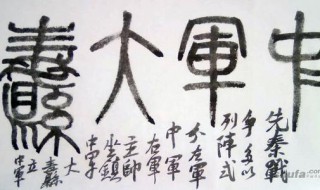 中軍大纛
先秦戰
爭多以
列陣式
分左軍
中軍
右軍
主帥
坐鎮
中軍
大
纛
立
中軍